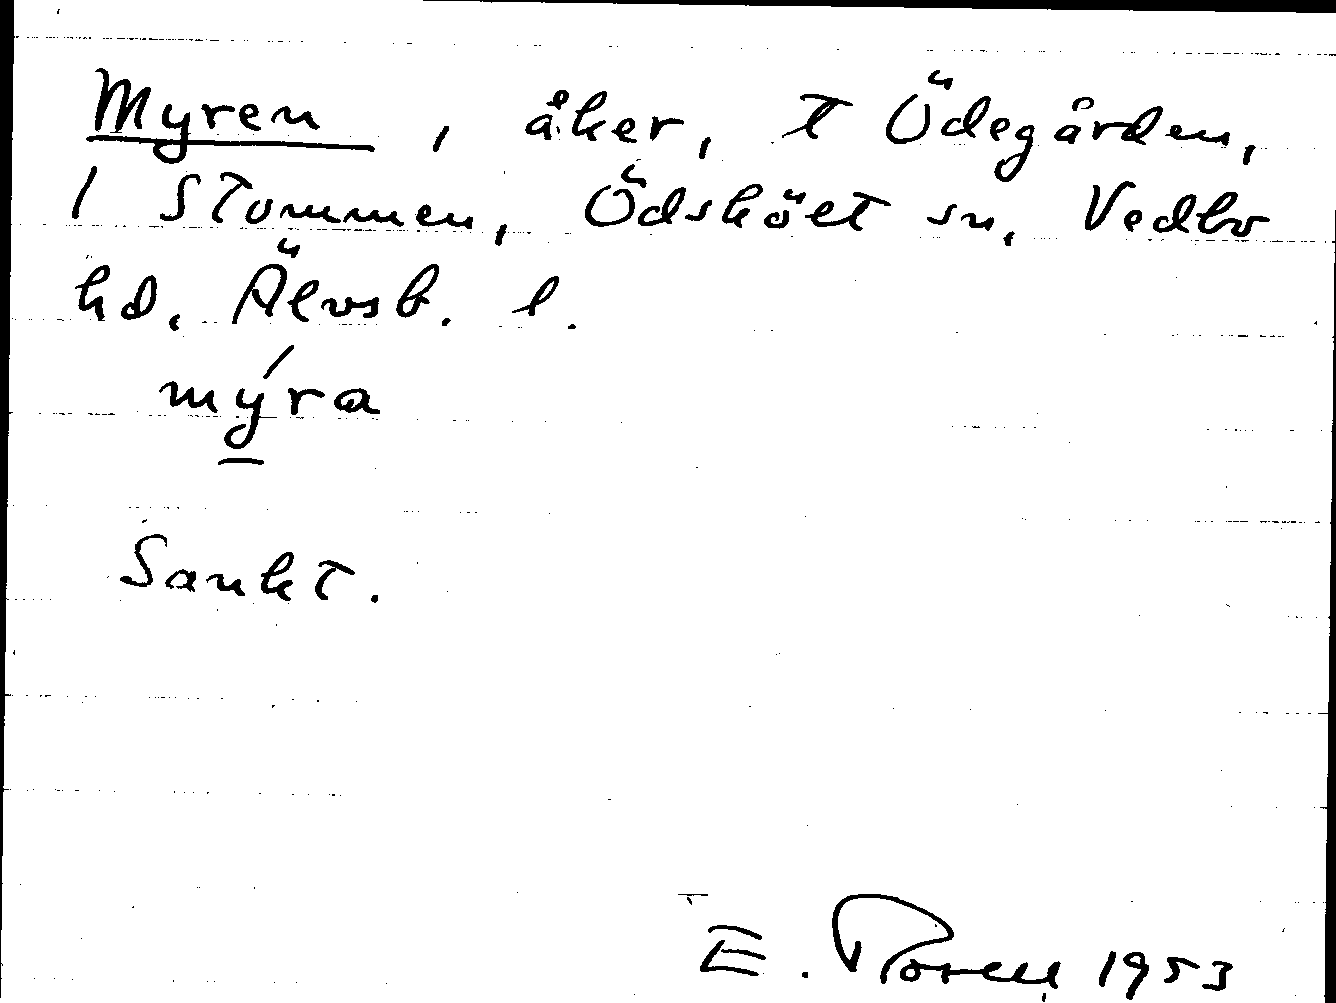 Myren, åker, t Ödegården,
1 Stommen, Ödskölt sn, Vedbo
hd. Älvsb. l.
mýra
Sankt.
E. 1953